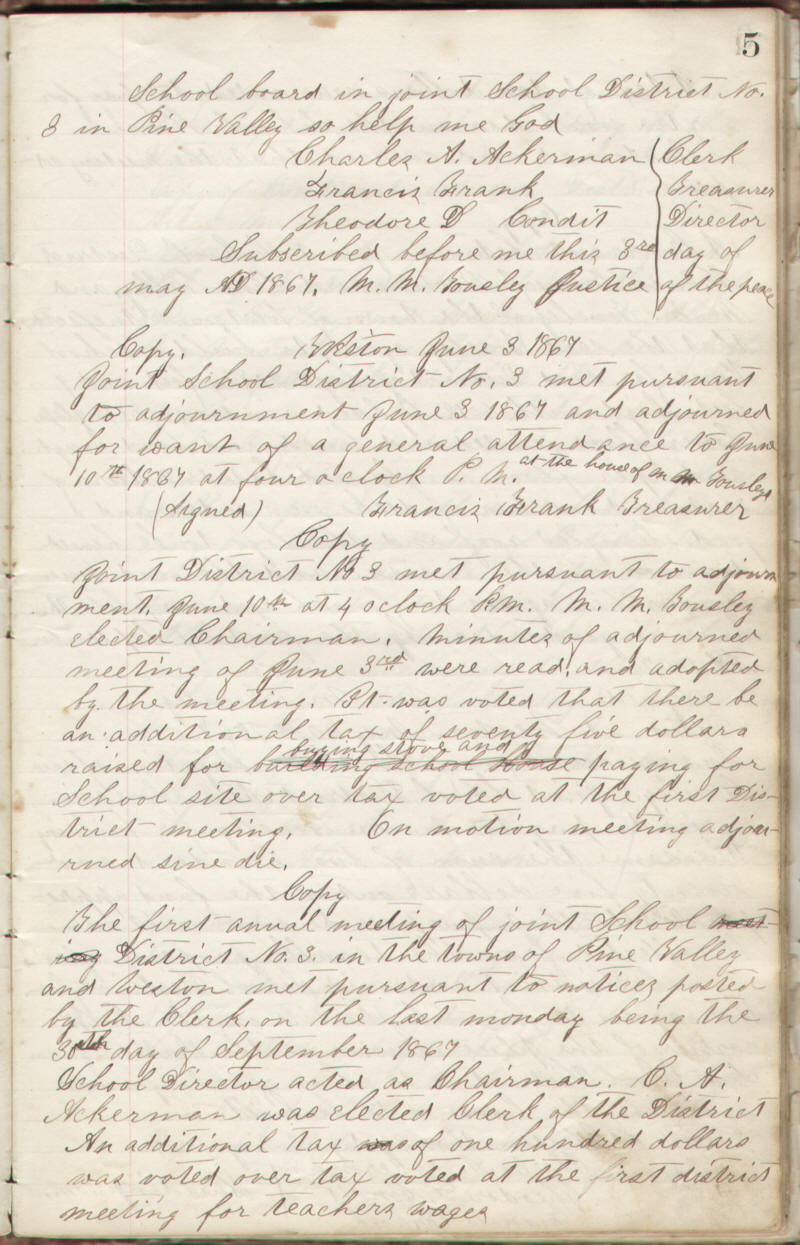 5
School board in joint School District No.
3 in Pine Valley so help me God
Charles A. Ackerman Clerk
Francis Frank Treasurer
Theodore D Condit Director
Subscribed before me this 3rd day of
may AD 1867. M. M. Tousley Justice of the peace
Copy. Weston June 3 1867
Joint School District No. 3 met pursuant
to adjournment June 3 1867 and adjourned
for want of a general attendance to June
10th 1867 at four oclock P. M. at the house of M M Tousleys
(Signed) Francis Frank Treasurer
Copy
Joint District No 3 met pursuant to adjourn
ment. June 10th at 4 oclock P.M. M. M. Tousley
elected Chairman. Minutes of adjourned
meeting of June 3rd were read, and adopted
by the meeting. It was voted that there be
an additional tax of seventy five dollars
buying stove and
raised for building school house paying for
School site over tax voted at the first Dis-
trict meeting. On motion meeting adjou-
rned sine die.
Copy
The first anual meeting of joint School meet-
ing District No. 3. in the towns of Pine Valley
and Weston met pursuant to notices posted
by the Clerk, on the last monday being the
30th day of September 1867
School Director acted as Chairman. C. A.
Ackerman was elected Clerk of the District
An additional tax was of one hundred dollars
was voted over tax voted at the first district
meeting for teachers wages